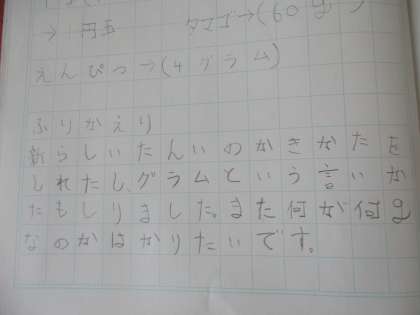 → 円玉 タマゴ→(60g)
えんぴつ→(4グラム)
ふりかえり
新らしいたんいのかきかたを
しれたし、グラムという言いか
たもしりました。また何が何g
なのかはかりたいです。